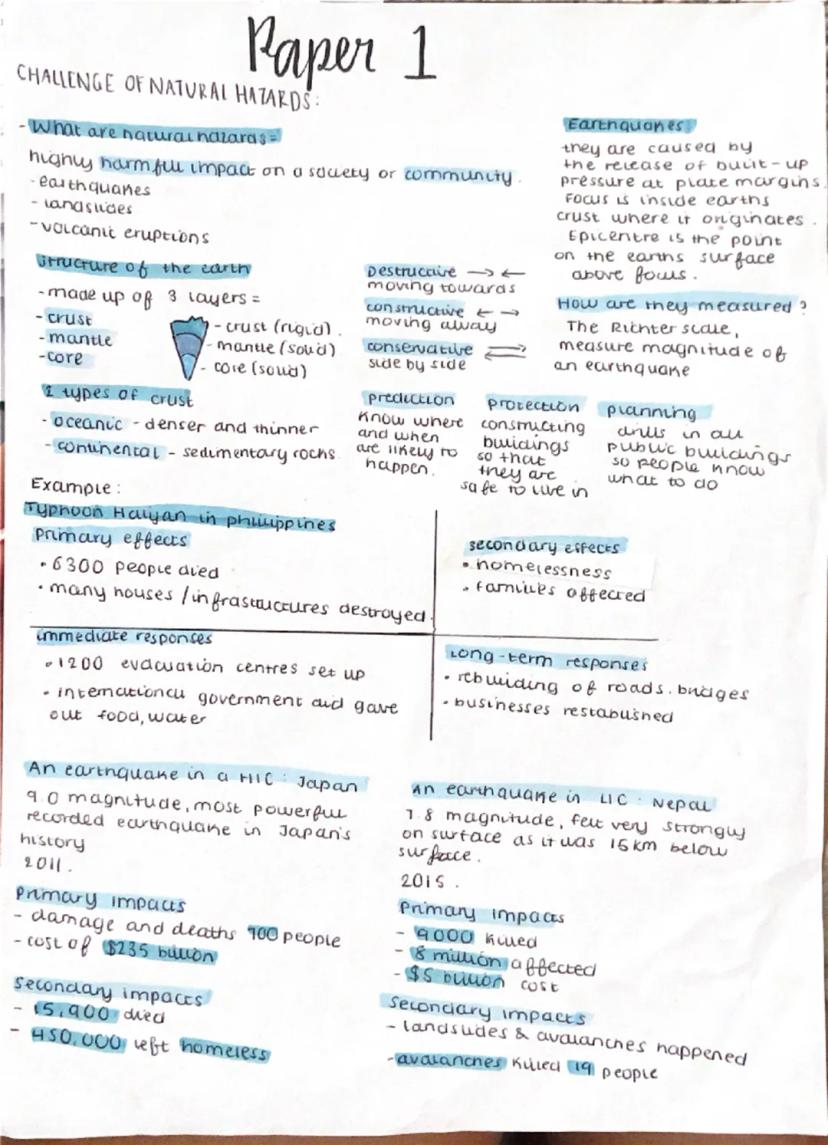 Paper 1
CHALLENGE OF NATURAL HAZARDS:
- What are natural hazards =
highly harmful impact on a society or community.
- earthquakes
- landslides
- volcanic eruptions
Earthquakes
they are caused by
the release of built-up
pressure at plate margins.
Focus is inside earths
crust where it originates.
Epicentre is the point
on the earths surface
above focus.
Structure of the earth
- made up of 3 layers =
- crust
- mantle
- core
- crust (rigid).
- mantle (solid)
- core (solid)
Destructive → ←
moving towards
constructive ← →
moving away
conservative ⇌
side by side
How are they measured?
The Richter scale,
measure magnitude of
an earthquake
2 types of crust
- oceanic - denser and thinner
- continental - sedimentary rocks
prediction
know where
and when
are likely to
happen.
protection
constructing
buildings
so that
they are
safe to live in
planning
drills in all
public buildings
so people know
what to do
Example:
Typhoon Haiyan in philippines
Primary effects
• 6300 people died
• many houses / infrastructures destroyed.
secondary effects
• homelessness
• families affected
immediate responses
• 1200 evacuation centres set up
• international government aid gave
out food, water
Long-term responses
• rebuilding of roads. bridges
• businesses restablished
An earthquake in a HIC: Japan
9.0 magnitude, most powerful
recorded earthquake in Japan's
history
2011.
Primary impacts
- damage and deaths 700 people
- cost of $235 billion
Secondary impacts
- 15,900 died
- 450,000 left homeless
An earthquake in LIC: Nepal
7.8 magnitude, felt very strongly
on surface as it was 15km below
surface.
2015.
Primary impacts
- 9000 killed
- 8 million affected
- $5 billion cost
Secondary impacts
- landslides & avalanches happened
- avalanches killed 19 people